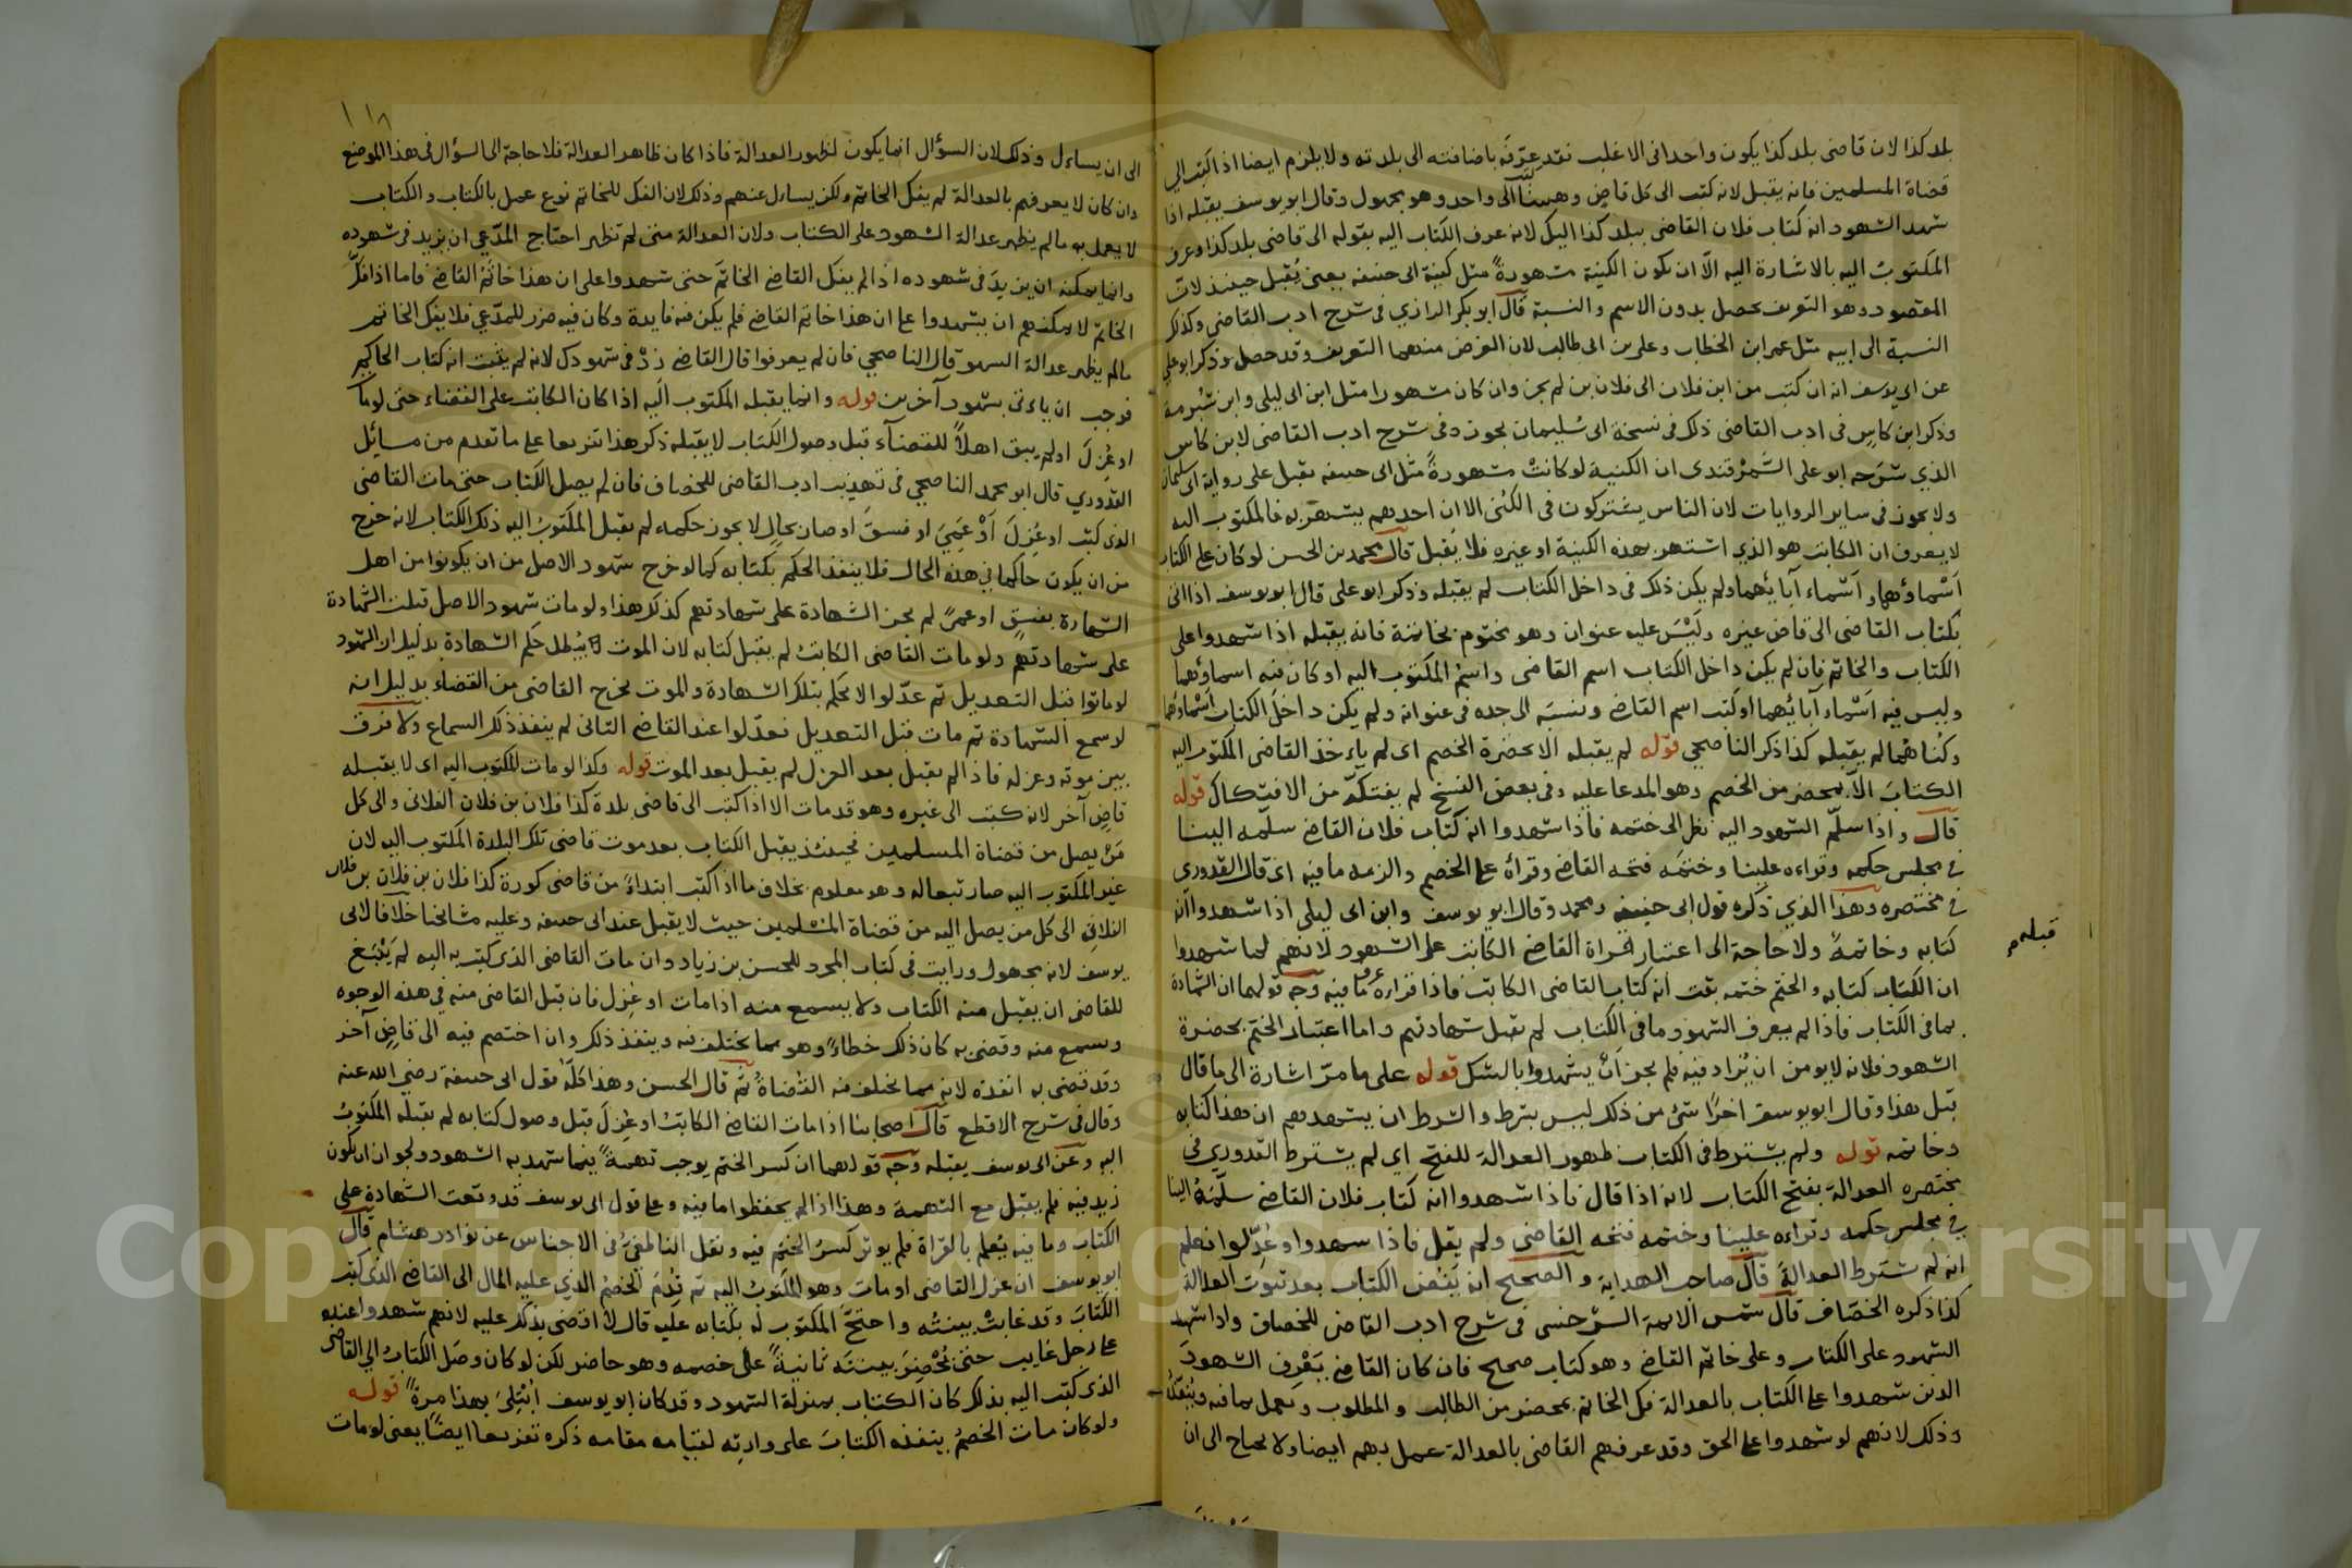 بلد كذا لان قاضى بلد كذا يكون واحدا فى الاغلب فقد عرّفه باضافته الى بلدته ولا يلزم ايضا اذا كتب الى
قضاة المسلمين فانه يقبل لانه كتب الى كل قاضٍ وهنا الى واحد وهو مجهول وقال ابو يوسف يقبله اذا
شهد الشهود انه كتاب فلان القاضى ببلد كذا اليك لانه عرف الكتاب اليه بقوله الى قاضى بلد كذا وعرف
المكتوب اليه بالاشارة اليه الّا ان يكون الكنية مشهورةً مثل كنية ابى حنيفه يعنى يُقبل حينئذ لان
المقصود وهو التعريف يحصل بدون الاسم والنسبة قال ابو بكر الرازي فى شرح ادب القاضى وكذلك
النسبة الى ابيه مثل عمر ابن الخطاب وعلى بن ابى طالب لان الغرض منهما التعريف وقد حصل وذكر ابو على
عن ابى يوسف انه ان كتب من ابن فلان الى فلان بن لم يجز وان كان مشهورا مثل ابن ابى ليلى وابن شبرمة
وذكر ابن كاسٍ فى ادب القاضى ذلك فى نسخة ابى سُليمان يجوز وفى شرح ادب القاضى لابن كاس
الذي شرحه ابو على السَّمرْقندى ان الكنية لو كانتْ مشهورةً مثل ابى حنيفه تقبل على رواية ابى سليمان
ولا يجوز فى ساير الروايات لان الناس يشتركون فى الكُنى الا ان احدهم يشتهر به فالمكتوب اليه
لا يعرف ان الكاتب هو الذي اشتهر بهذه الكنية او غيره فلا يُقبل قال محمد بن الحسن لو كان على الكتاب
اَسْماؤهما واَسْماء آبائهما ولم يكن ذلك فى داخل الكتاب لم يقبله وذكر ابو على قال ابو يوسف اذا اتى
بكتاب القاضى الى قاض غيره ولَيْسَ عليه عنوان وهو مختوم بخاتمه فانه يقبله اذا شهدوا على
الكتاب والخاتم فان لم يكن داخل الكتاب اسم القاضى واسمُ المكتوب اليه او كان فيه اسماؤهما
وليس فيه اَسْماء آبائهما او كتب اسم القاضى ونسبَه الى جده فى عنوانه ولم يكن داخلَ الكتاب اَسْماؤهما
وكُناهُما لم يقبله كذا ذكر الناصحي قوله لم يقبله الا بحضرة الخصم اى لم ياءخذ القاضى المكتوب اليه
الكتابَ الاّ بمحضر من الخصم وهو المدعا عليه وفى بعض النسخ لم يفتكّه من الافتكاك قوله
قال واذا سلّم الشهود اليه نظر الى ختمه فاذا شهدوا انه كتاب فلان القاضى سلّمه الينا
فى مجلس حكمه وقراءه علينا وختمَه فتحه القاضى وقرأه على الخصم والزمه ما فيه اى قال القدورى
فى مختصره وهذا الذي ذكره قول ابى حنيفه ومحمد وقال ابو يوسف وابن ابى ليلى اذا شهدوا انه
كتابه وخاتمهُ ولا حاجة الى اعتبار قراة القاضى الكاتب على الشهود لانهم لما شهدوا
قبله
ان الكتاب كتابه والختم ختمه ثبت انه كتاب القاضى الكاتب فاذا قراءه عرف ما فيه وجه قولهما ان الشهادة
بما فى الكتاب فاذا لم يعرف الشهود ما فى الكتاب لم تقبل شهادتهم واما اعتبار الختم بحضرة
الشهود فلانه لا يومن ان يُزاد فيه فلم يجز اَنْ يشهدوا بالشك قوله على ما مرّ اشارة الى ما قال
قبل هذا وقال ابو يوسف اخرًا شئ من ذلك ليس بشرط والشرط ان يشهدهم ان هذا كتابه
وخاتمه قوله ولم يشترط فى الكتاب ظهور العدالة للفتح اى لم يشترط القدوري فى
مختصره العدالة بفتح الكتاب لانه اذا قال فاذا شهدوا انه كتاب فلان القاضى سلّمهُ الينا
فى مجلس حكمه وقراءه علينا وختمه فتحه القاضى ولم يقل فاذا شهدوا وعُدّلوا فعلم
انه لم يشترط العدالةَ قال صاحب الهداية والصحيح انه يَفُض الكتاب بعد ثبوت العدالة
كذا ذكره الخصّاف قال شمس الائمة السرخسى فى شرح ادب القاضى للخصاف واذا شهد
الشهود على الكتاب وعلى خاتم القاضى وهو كتاب صحيح فان كان القاضى يَعْرف الشهودَ
الذين شهدوا على الكتاب بالعدالة فكّ الخاتم بمحضر من الطالب والمطلوب وعمل بما فيه وينفذه
وذلك لانهم لو شهدوا على الحق وقد عرفهم القاضى بالعدالة عمل بهم ايضا ولا يحتاج الى ان
١١٨
الى ان يساءل وذلك لان السؤال انما يكون لظهور العدالة فاذا كان ظاهر العدالة فلا حاجة الى السؤال فى هذا الموضع
وان كان لا يعرفهم بالعدالة لم يفك الخاتم ولكن يساءل عنهم وذلك لان الفك للخاتم نوع عمل بالكتاب والكتاب
لا يعمل به ما لم يظهر عدالة الشهود على الكتاب ولان العدالة متى لم تظهر احتاج المدّعي ان يزيد فى شهوده
وانما يمكنه ان يزيدَ فى شهوده اذا لم يفك القاضى الخاتمَ حتى شهدوا على ان هذا خاتمُ القاضى فاما اذا فكّ
الخاتم لا يمكنهم ان يشهدوا على ان هذا خاتم القاضى فلم يكن فيه فايدة وكان فيه ضرر للمدّعي فلا يفك الخاتم
مالم يظهر عدالة الشهود قال الناصحي فان لم يعرفوا قال القاضى زِدْ فى شهودك لانه لم يثبت انه كتاب الحاكم
فوجب ان ياءتى بشهود آخرين قوله وانما يقبله المكتوب اليه اذا كان الكاتب على القضاء حتى لو مات
او عُزِلَ او لم يبق اهلاً للقضآء قبل وصول الكتاب لا يقبله ذكر هذا تفريعا على ما تقدم من مسائل
القدوري قال ابو محمد الناصحي فى تهذيب ادب القاضى للخصاف فان لم يصل الكتاب حتى مات القاضى
الذى كتب او عُزِلَ اَوْ عَمِيَ او فسقَ او صار بحالٍ لا يجوز حكمه لم يقبل المكتوبُ اليه ذلك الكتاب لانه خرج
من ان يكون حاكما فى هذه الحال فلا ينفذ الحكم بكتابه كما لو خرج شهود الاصل من ان يكونوا من اهل
الشهادة بفسقٍ او عمىً لم يجز الشهادة على شهادتهم كذلك هذا ولو مات شهود الاصل قبلت الشهادة
على شهادتهم ولو مات القاضى الكاتبُ لم يقبل كتابه لان الموت لا يُبطل حكم الشهادة بدليل ان الشهود
لو ماتوا قبل التعديل ثم عدّلوا لا يحكم بتلك الشهادة والموت يخرج القاضى من القضاء بدليل انه
لو سمع الشهادة ثم مات قبل التعديل فعدّلوا عند القاضى الثانى لم ينفذ ذلك السماع ولا فرق
بين موته وعزله فاذا لم يقبل بعد العزل لم يقبل بعد الموت قوله وكذا لو مات المكتوب اليه اى لا يقبله
قاضٍ آخر لانه كتب الى غيره وهو قد مات الا اذا كتب الى قاضى بلدة كذا فلان بن فلان الفلانى والى كل
مَنْ يصل من قضاة المسلمين فحينئذ يقبل الكتاب بعد موت قاضى تلك البلدة المكتوب اليه لان
غير المكتوب اليه صار تبعا له وهو معلوم بخلاف ما اذا كتب ابتداءً من قاضى كورة كذا فلان بن فلان بن فلان
الفلانِى الى كل من يصل اليه من قضاة المسلمين حيث لا يقبل عند ابى حنيفه وعليه مشائخنا خلافا لابى
يوسف لانه مجهول ورايت فى كتاب المجرد للحسن بن زياد وان مات القاضى الذى كتب به اليه لم يَنْبَغ
للقاضى ان يقبل منه الكتاب ولا يسمع منه اذا مات او عُزِل فان قبل القاضى منه فى هذه الوجوه
وسمع منه وقضى به كان ذلك خطاءً وهو مما يختلف فيه وينفذ ذلك وان اختصم فيه الى قاضٍ آخر
وقد قضى به انفذه لانه مما يختلف فيه القضاةُ ثم قال الحسن وهذا كلّه قول ابى حنيفة رضى الله عنه
وقال فى شرح الاقطع قال اصحابنا اذا مات القاضى الكاتبُ او عُزِلَ قبل وصول كتابه لم يقبله المكتوبُ
اليه وعن ابى يوسف يقبله وجه قولهما ان كسر الختم يوجب تهمةً فيما شهد به الشهود ولجواز ان يكون
زيد فيه فلم يقبل مع التهمة وهذا اذا لم يحفظوا ما فيه وعلى قول ابى يوسف قد وقعت الشهادة على
الكتاب وما فيه يُعلم بالقراة فلم يوثر كَسرُ الختم فيه ونقل الناطفىُّ فى الاجناس عن نوادر هشام قال
ابو يوسف ان عزل القاضى او مات وهو المكتوبُ اليه ثم قَدُمَ الخصمُ الذي عليه المال الى القاضى الذى كتب
الكتابَ وقد غابتْ بينتُه واحتجّ المكتوب له بكتابه عليه قال لا اقضى بذلك عليه لانهم شهدوا عنده
على رجل غايب حتى تُحْضِرَ بينتَه ثانيةً على خصمه وهو حاضر لكن لو كان وصَل الكتابُ الى القاضى
الذى كتب اليه بذلك كان الكتاب بمنزلة الشهود وقد كان ابو يوسف ابتُلِىَ بهذا مرةً قوله
ولو كان مات الخصمُ ينفذه الكتابَ على وارثه لقيامه مقامه ذكره تفريعا ايضًا يعنى لو مات
Copyright © King Saud University